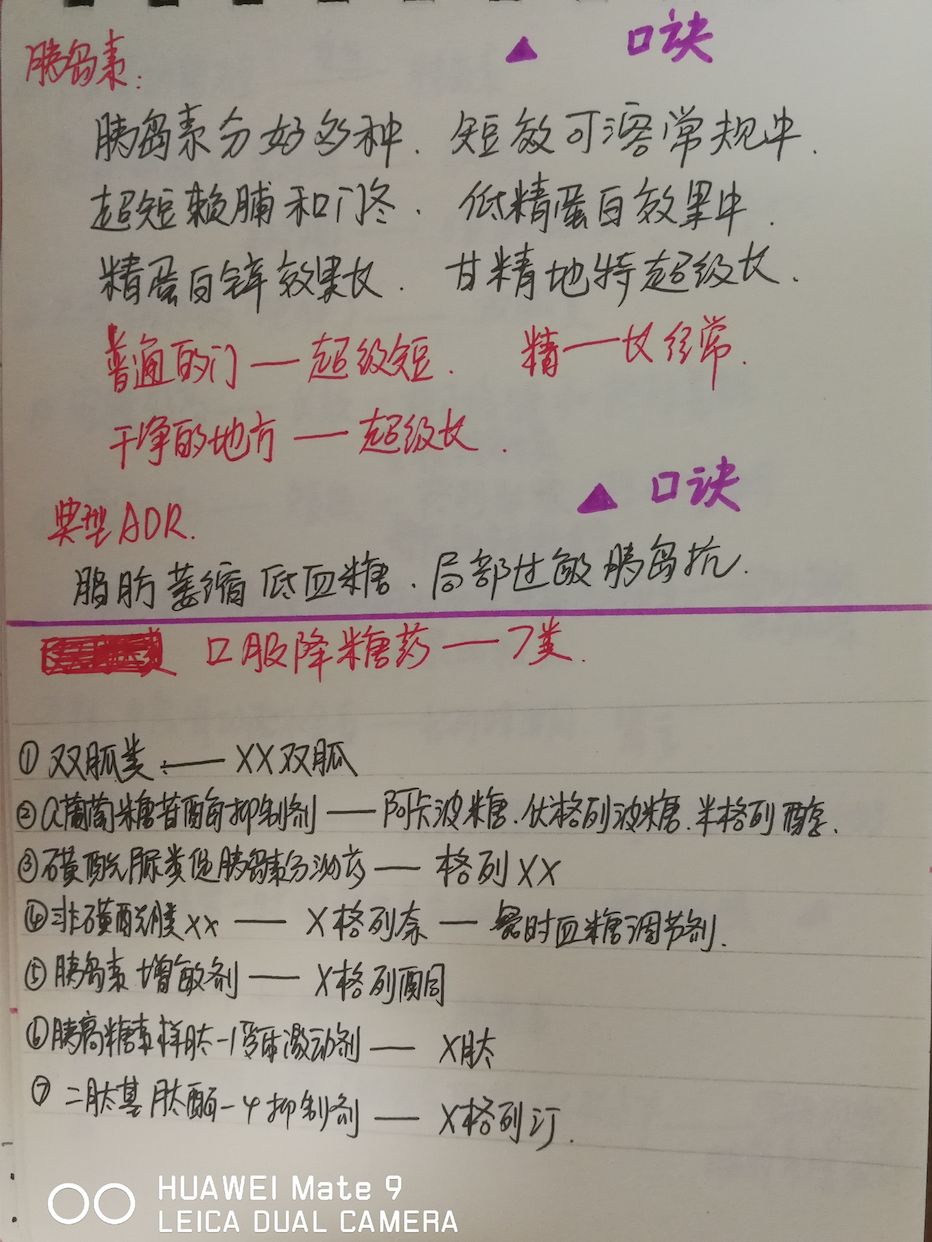 ▲ 口诀
胰岛素:
胰岛素分好多种. 短效可溶常规中.
超短赖脯和门冬. 低精蛋白效果中.
精蛋白锌效果长. 甘精地特超级长.
普通的门—超级短. 精一长经常.
干净的地方—超级长.
▲ 口诀
典型ADR.
脂肪萎缩低血糖. 局部过敏胰岛抗.
口服降糖药—7类.
① 双胍类 — XX双胍
② α葡萄糖苷酶抑制剂 — 阿卡波糖.伏格列波糖.米格列醇.
③ 磺酰脲类促胰岛素分泌药 — 格列XX
④ 非磺酰脲类xx — X格列奈 — 餐时血糖调节剂.
⑤ 胰岛素增敏剂 — X格列酮
⑥ 胰高糖素样肽-1受体激动剂 — X肽
⑦ 二肽基肽酶-4抑制剂 — X格列汀.
HUAWEI Mate 9
LEICA DUAL CAMERA